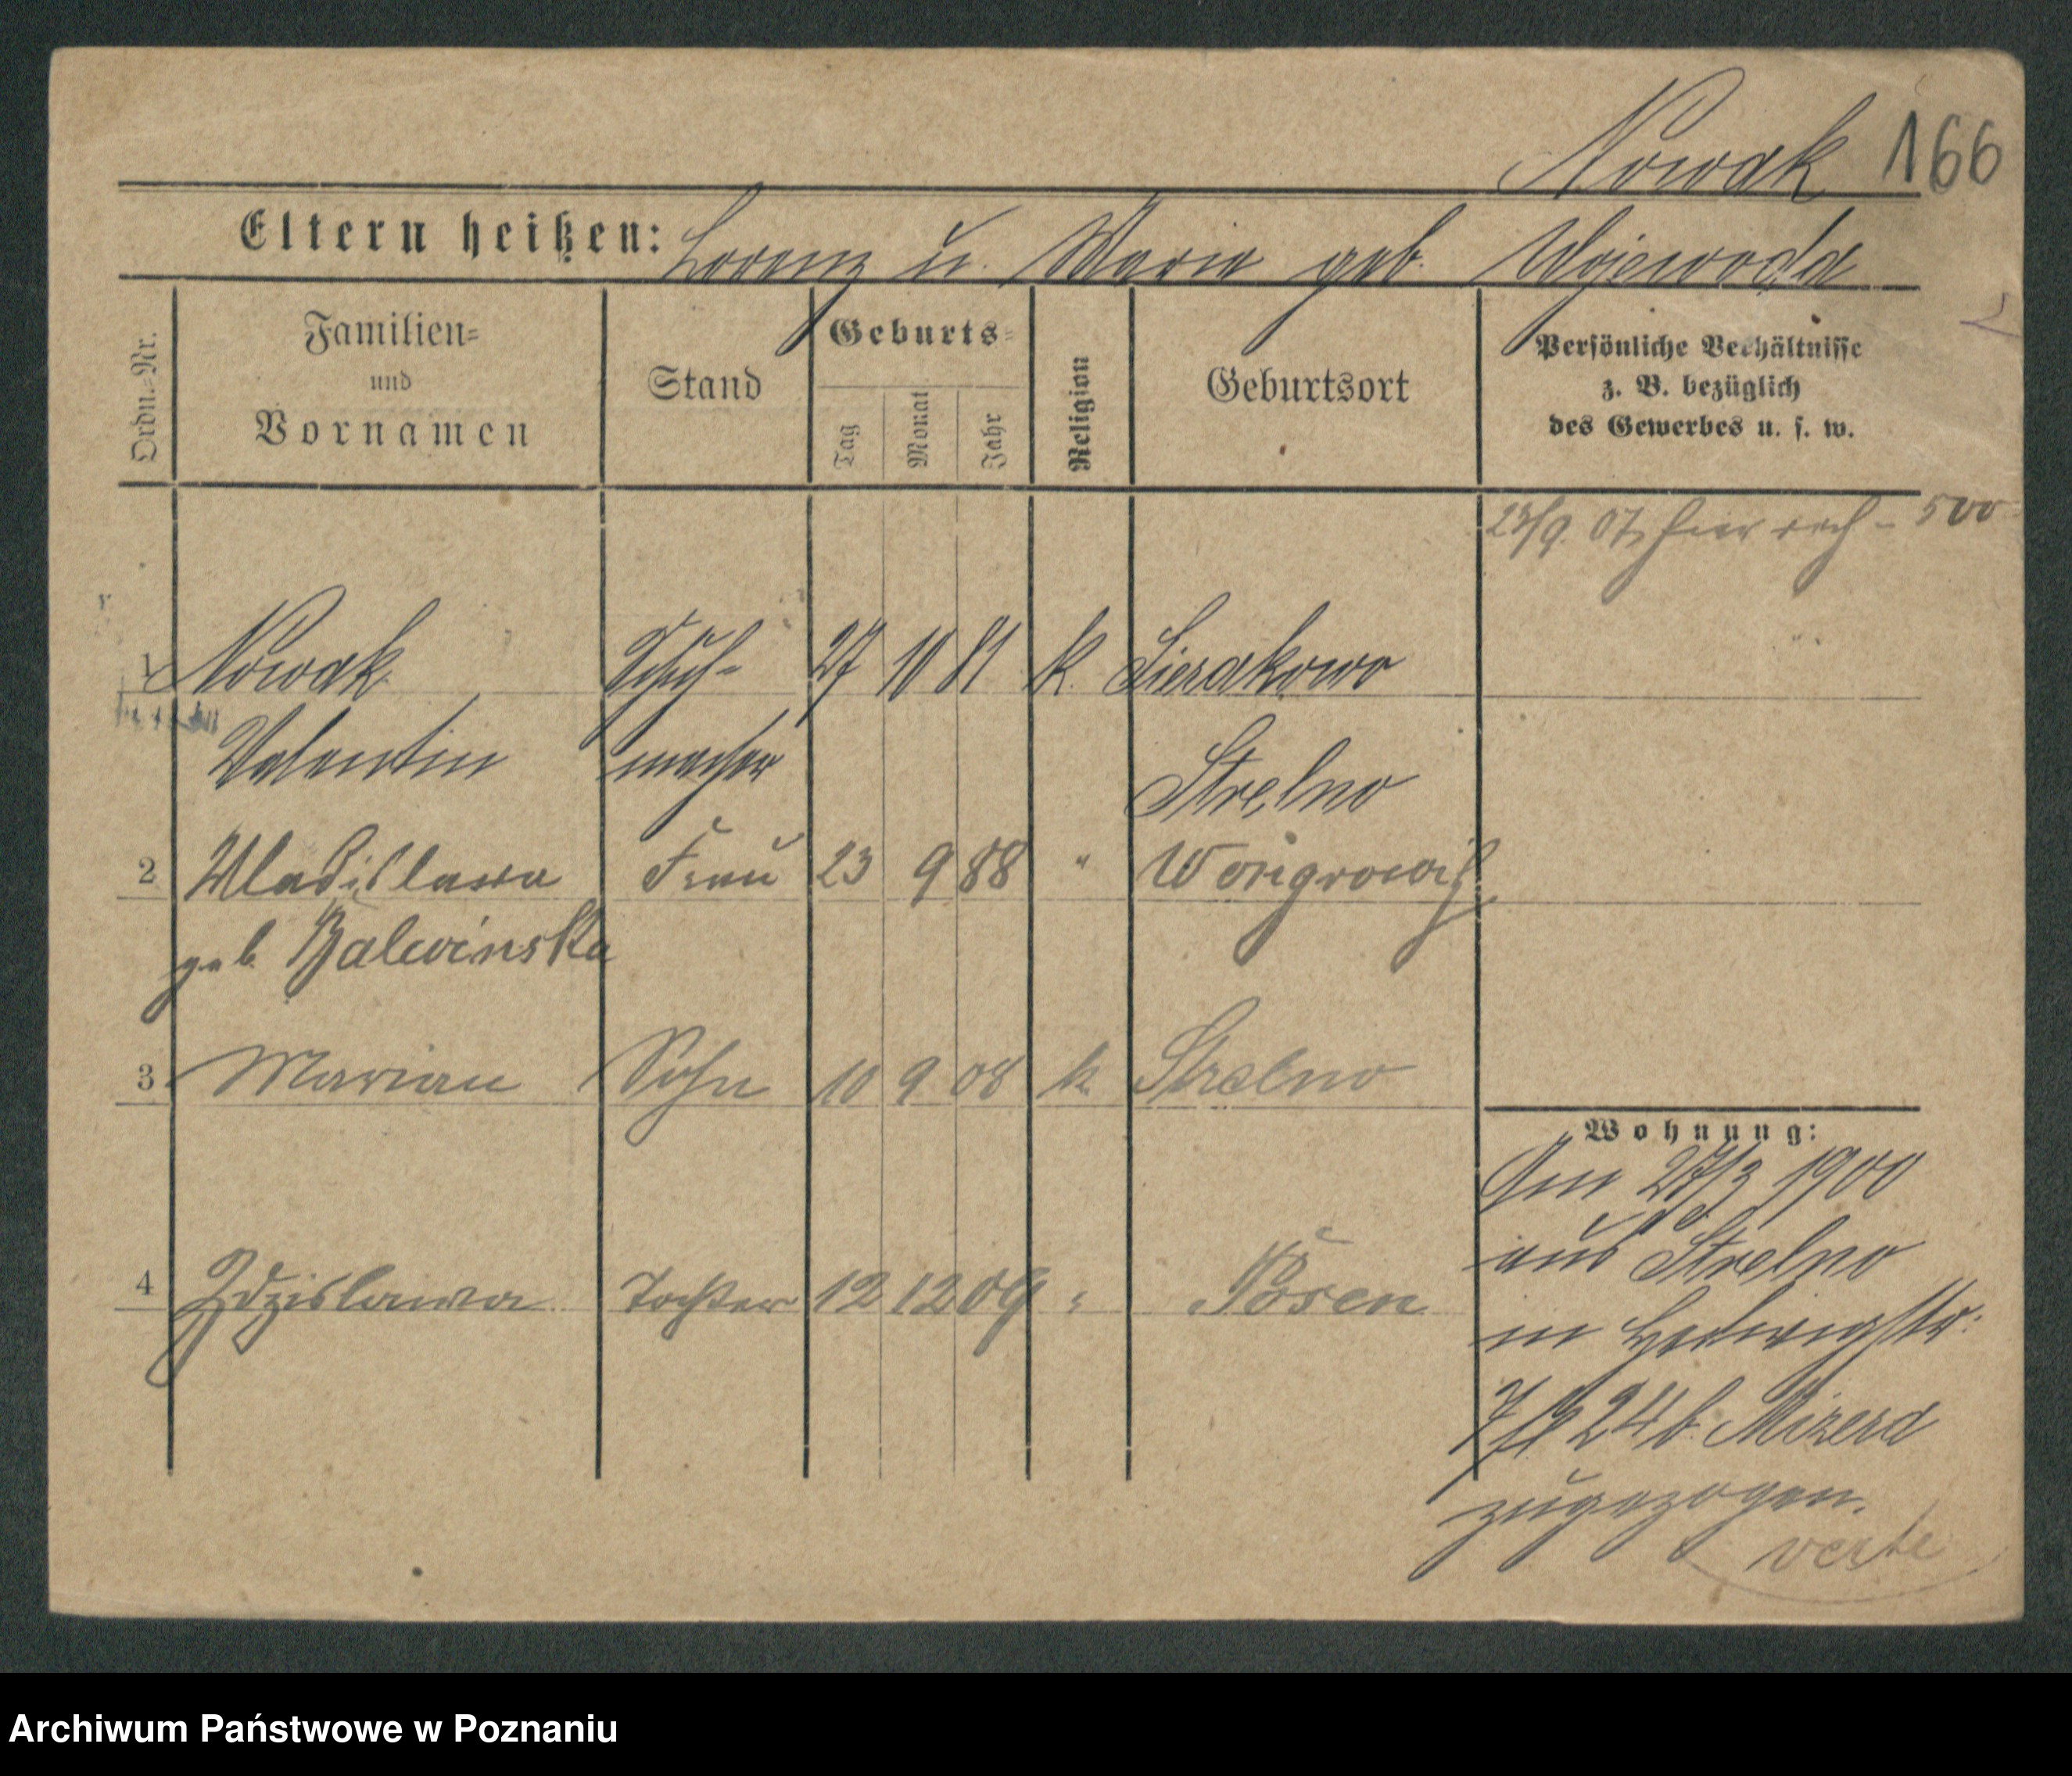 Nowak 166
Eltern heißen: Lorenz u. Maria geb. Wojewoda
Ordn.-Nr.
Familien-
und
Vornamen
Stand
Geburts-
Tag
Monat
Jahr
Religion
Geburtsort
Persönliche Verhältnisse
z. B. bezüglich
des Gewerbes u. s. w.
23/9. 07 hier - 500
1 Nowak Schuh- 27 10 81 k. Sierakowo
Valentin macher Strelno
2 Wladislawa Frau 23 9 88 " Wongrowitz
geb. Balwinska
3 Marian Sohn 10 9 08 k. Strelno
4 Zdzislawa Tochter 12 12 09 " Posen
Wohnung:
Am 27/3 1900
aus Strelno
in Hedwigstr.
24 b. Mizera
zugezogen.
verte
Archiwum Państwowe w Poznaniu